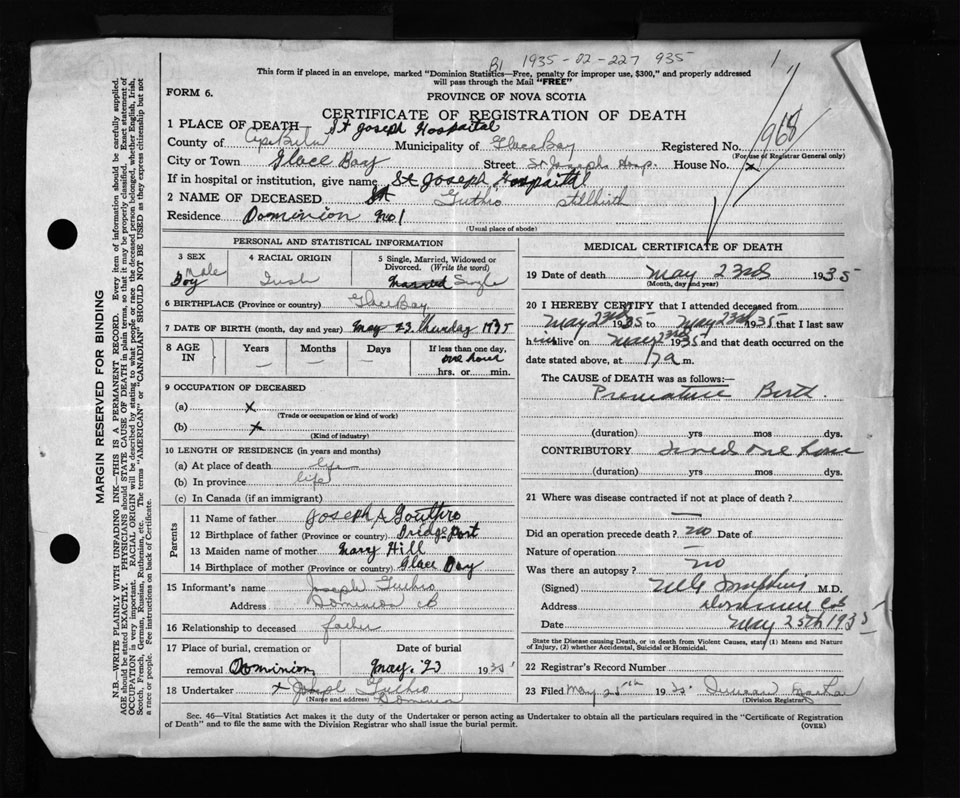 B1 1935-02-227 935
This form if placed in an envelope, marked "Dominion Statistics—Free, penalty for improper use, $300," and properly addressed
will pass through the Mail "FREE"
FORM 6.
PROVINCE OF NOVA SCOTIA
CERTIFICATE OF REGISTRATION OF DEATH
968
1 PLACE OF DEATH— St Joseph Hospital
County of Cape Breton Municipality of Glace Bay Registered No.
(For use of Registrar General only)
City or Town Glace Bay Street St Josephs Hosp. House No. x
If in hospital or institution, give name St Joseph Hospaital
2 NAME OF DECEASED Guthro stillbirth
Residence Dominion No 1
(Usual place of abode)
PERSONAL AND STATISTICAL INFORMATION
3 SEX 4 RACIAL ORIGIN 5 Single, Married, Widowed or Divorced. (Write the word)
Male
Boy Irish Married Single
6 BIRTHPLACE (Province or country) Glace Bay
7 DATE OF BIRTH (month, day and year) May 23 Thursday 1935
8 AGE IN Years Months Days If less than one day,
— one hour
hrs. or min.
9 OCCUPATION OF DECEASED
(a) x
(Trade or occupation or kind of work)
(b) x
(Kind of industry)
10 LENGTH OF RESIDENCE (in years and months)
(a) At place of death life
(b) In province life
(c) In Canada (if an immigrant)
Parents
11 Name of father Joseph A Gouthro
12 Birthplace of father (Province or country) Bridgeport
13 Maiden name of mother Mary Hill
14 Birthplace of mother (Province or country) Glace Bay
15 Informant's name Joseph Guthro
Address Dominion CB
16 Relationship to deceased father
17 Place of burial, cremation or removal Dominion Date of burial May. 23 1935
18 Undertaker x Joseph Guthro
(Name and address) Dominion
MEDICAL CERTIFICATE OF DEATH
19 Date of death May 23rd 1935
(Month, day and year)
20 I HEREBY CERTIFY that I attended deceased from
May 23rd 1935 to May 23rd 1935 that I last saw
him alive on May 23rd 1935 and that death occurred on the
date stated above, at 1 a m.
The CAUSE of DEATH was as follows:—
Premature Birth.
(duration) yrs mos dys.
CONTRIBUTORY Lived One hour
(duration) yrs mos dys.
21 Where was disease contracted if not at place of death?
—
Did an operation precede death? no Date of
Nature of operation —
Was there an autopsy? no
(Signed) M.D.
Address Dominion CB
Date May 25th 1935
State the Disease causing Death, or in death from Violent Causes, state (1) Means and Nature
of Injury, (2) whether Accidental, Suicidal or Homicidal.
22 Registrar's Record Number
23 Filed May 25th 1935
(Division Registrar)
Sec. 46—Vital Statistics Act makes it the duty of the Undertaker or person acting as Undertaker to obtain all the particulars required in the "Certificate of Registration
of Death" and to file the same with the Division Registrar who shall issue the burial permit.
(OVER)
MARGIN RESERVED FOR BINDING
N.B.—WRITE PLAINLY WITH UNFADING INK—THIS IS A PERMANENT RECORD. Every item of information should be carefully supplied.
AGE should be stated EXACTLY. PHYSICIANS should STATE CAUSE OF DEATH in plain terms, so that it may be properly classified. Exact statement of
OCCUPATION is very important. RACIAL ORIGIN will be described by stating to what people or race the deceased person belonged, whether English, Irish,
Scotch, French, German, Russian, Ruthenian, etc. The terms "AMERICAN" or "CANADIAN" SHOULD NOT BE USED as they express citizenship but not
a race or people. See instructions on back of Certificate.